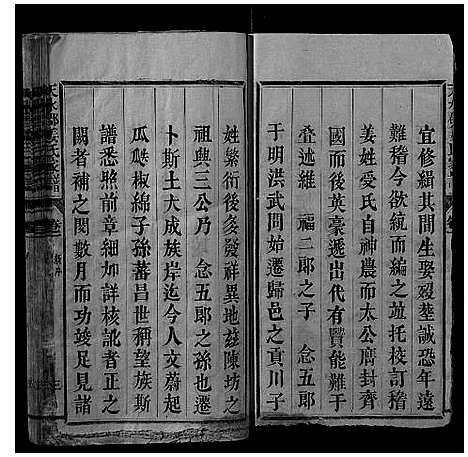 宜修緝其間生娶歿塟誠恐年遠
難稽今欲統而編之茲托校訂稽
姜姓爰氏自神農而太公膺封齊
國而後英豪遞出代有賢能難于
叠述維　福二郎之子　念五郎
于明洪武間始遷歸邑之貢川子
姓繁衍後多發祥異地茲陳坊之
祖興三公乃　念五郎之孫也遷
卜斯土大成族岸迄今人文蔚起
瓜瓞椒綿子孫蕃昌世稱望族斯
譜悉照前章細加詳核訛者正之
闕者補之閱數月而功竣足見諸
天水郡姜氏